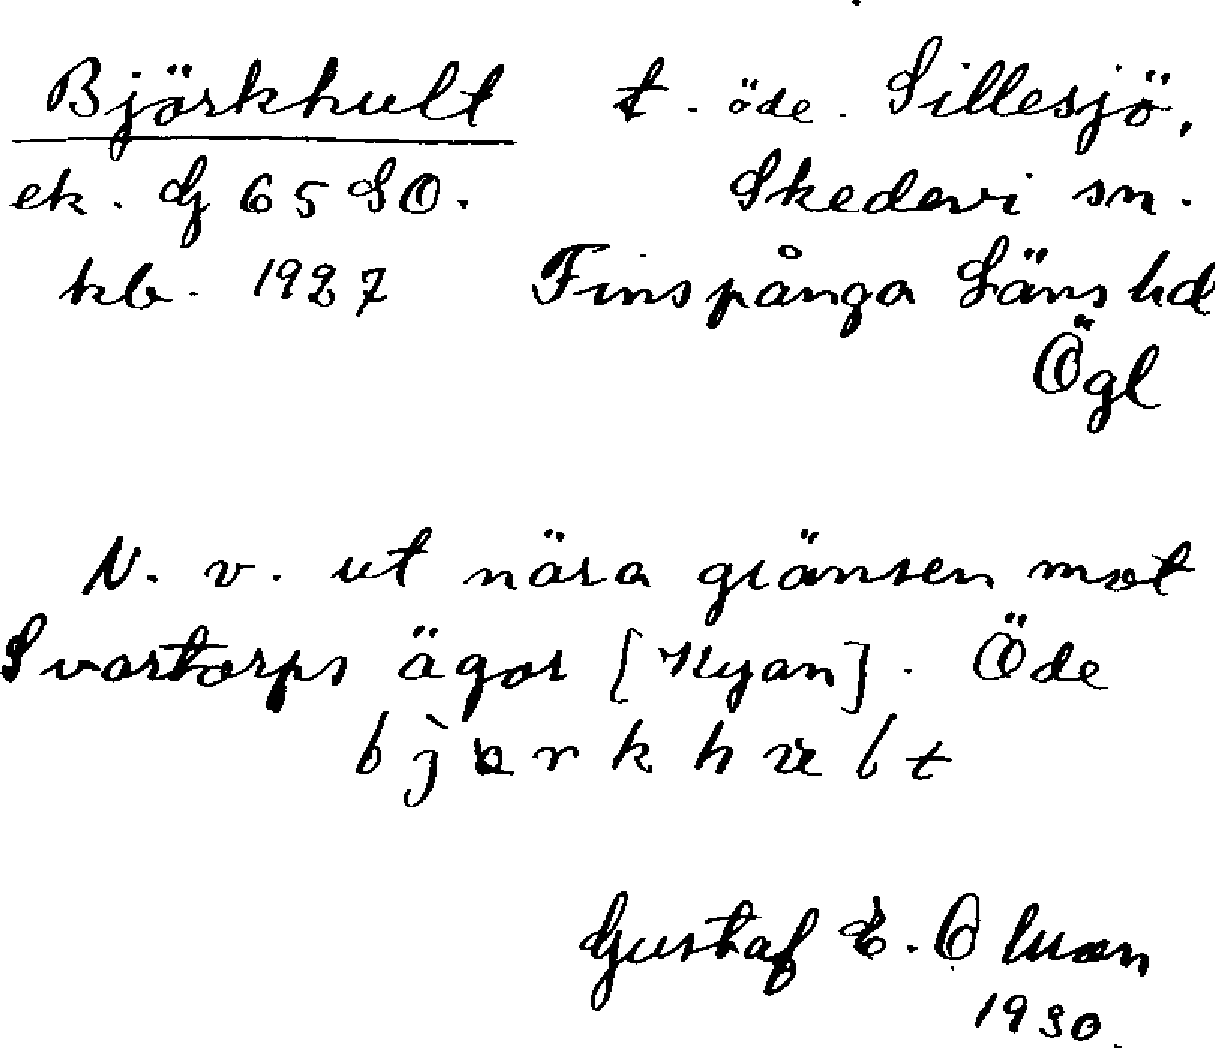 Björkhult t. öde. Sillesjö,
ek. G 65 SO. Skedevi sn.
kb. 1927 Finspånga Läns hd
Ögl
N. v. ut nära gränsen mot
Svartorps ägor [Kyan]. Öde
Gustaf E. Olsson
1930.